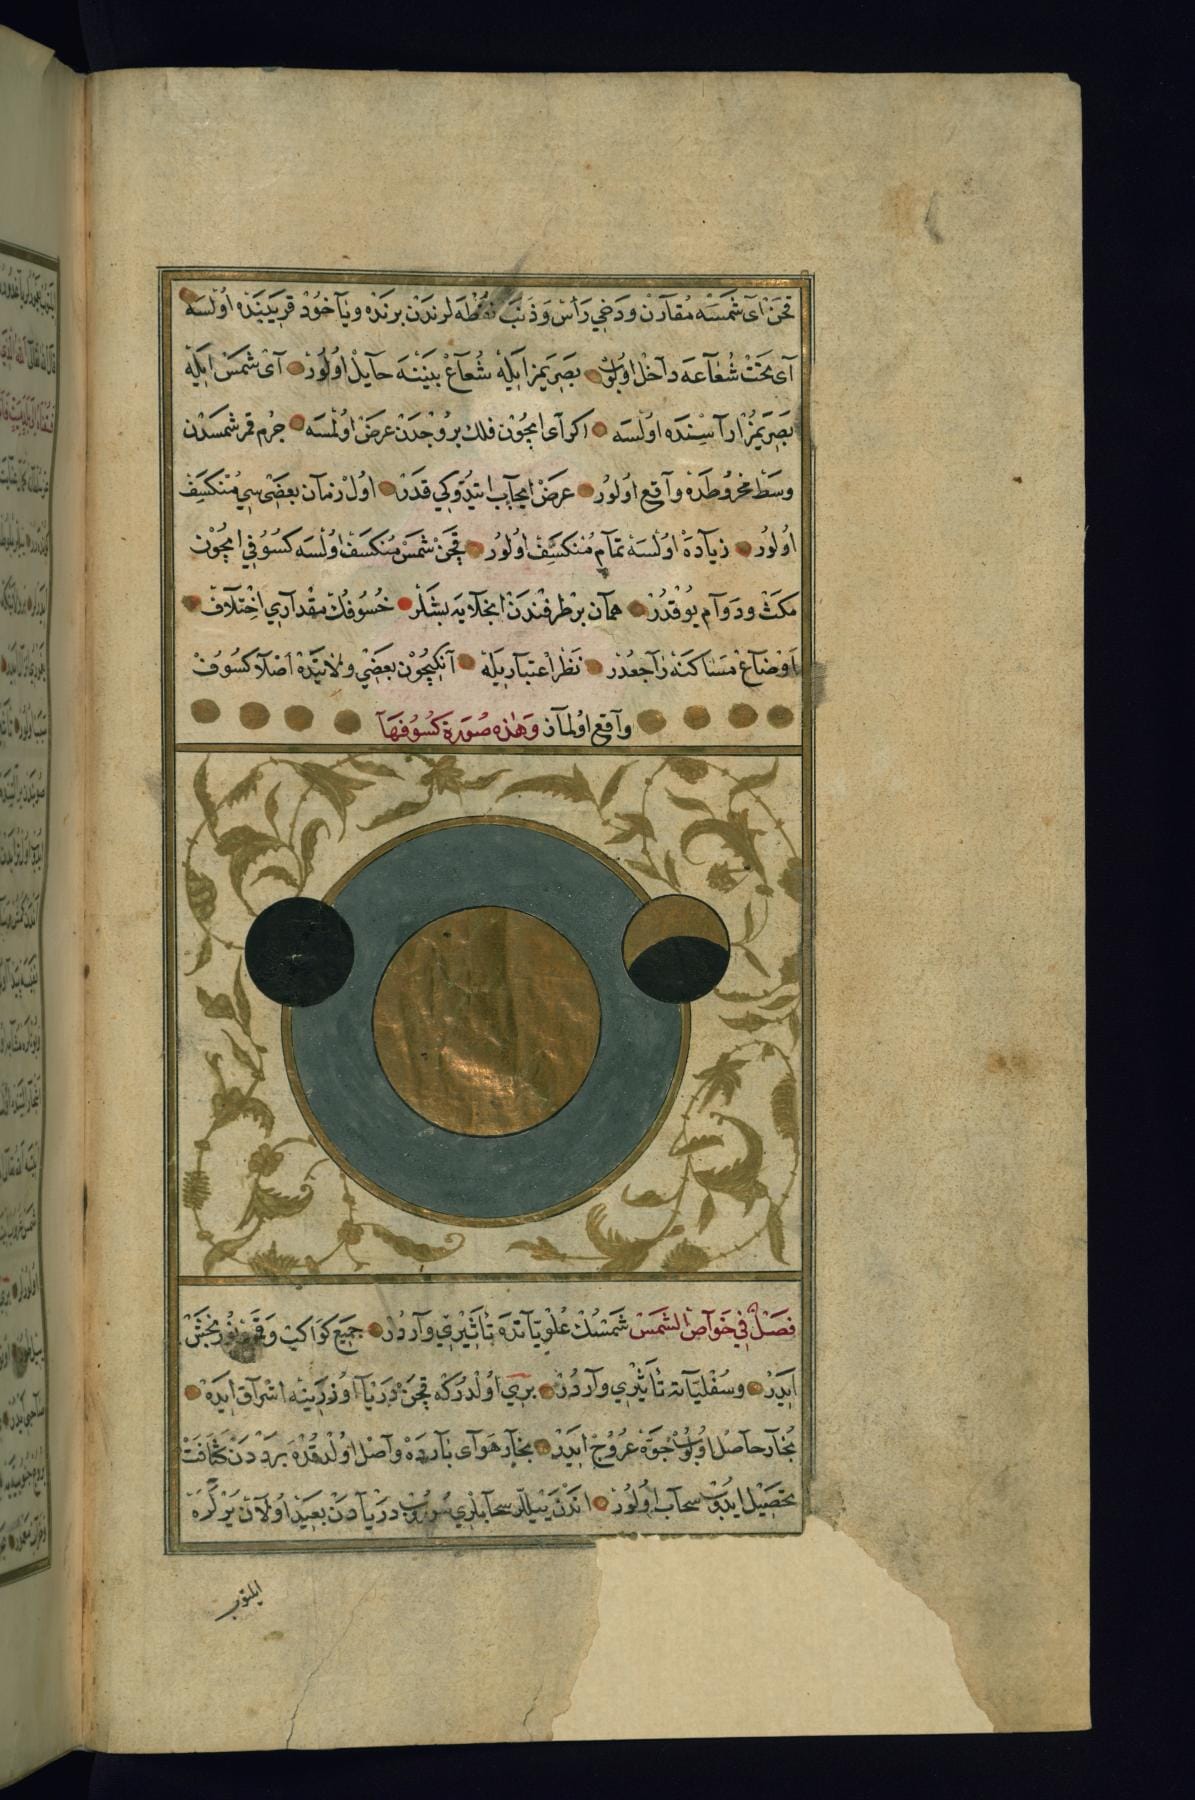 قچن آی شمسه مقارن و دخی رأس و ذنب نقطه لرندن برنده و یا خود قریبنده اولسه
آی تحت شعاعه داخل اولوب بصریمز ایله شعاع بیننه حایل اولور آی شمس ایله
بصریمز اراسنده اولسه اکر آی ایچون فلك بروجدن عرض اولمسه جرم قمر شمسدن
وسط مخروطده واقع اولور عرض ایجاب اتیدوکی قدر اول زمان بعضی سی منکسف
اولور زیاده اولسه تمام منکسف اولور قچن شمس منکسف اولسه کسوفی ایچون
مکث و دوام یوقدر همان بر طرفندن انجلایه بشلر خسوفك مقداری اختلاف
اوضاع مساکنه راجعدر نظر اعتباریله آنکیچون بعضی ولایتده اصلا کسوف
واقع اولماز وهذه صورة کسوفها
فصل في خواص الشمس شمسك علویاتده تأثیری واردر جمیع کواکب و قمره نور بخش
ایدر و سفلیاته تأثیری واردر بری اولدر که قچن دریا اوزرینه اشراق ایده
بخار حاصل اولوب جوّه عروج ایدر بخار هوای بارده واصل اولدقده بردن کثافت
تحصیل ایدوب سحاب اولور اندن ییللر سحابلری سوروب دریادن بعید اولان یرلره
ایلتوب